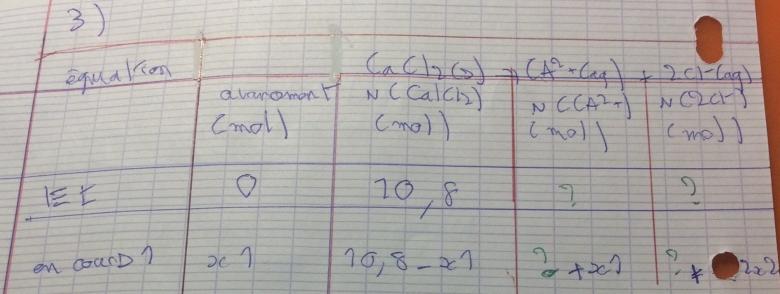 3)
équation CaCl2(s) → CA²+(aq) + 2Cl-(aq)
avancement N(CalCl2) N(CA²+) N(2Cl-)
(mol) (mol) (mol) (mol)
EI 0 10,8 ? ?
en cours 1 x1 10,8-x1 ? +x1 ? + 2x2